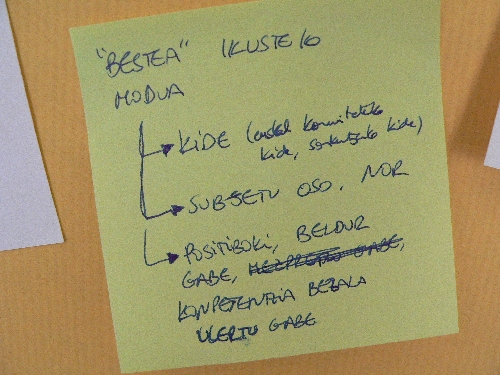 "BESTEA" IKUSTEKO
MODUA
KIDE (euskal komunitateko
kide, sorkuntzako kide)
SUBJETU OSO, NOR
POSITIBOKI, BELDUR
GABE, GABE,
KONPETENTZIA BEZALA
ULERTU GABE